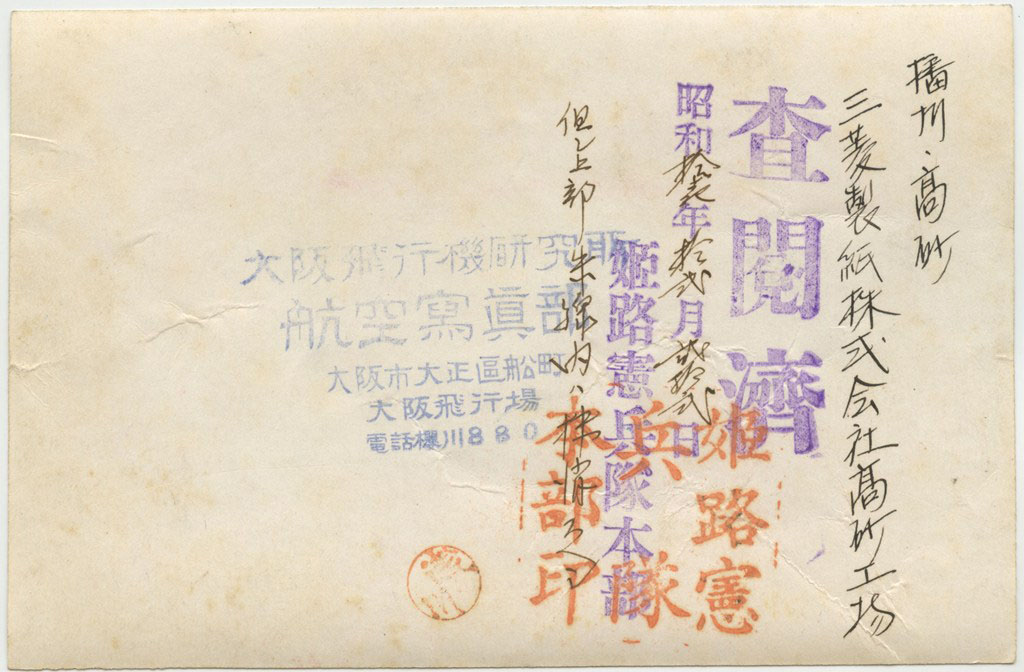 播州・高砂
三菱製紙株式会社高砂工場
査閲濟
昭和拾壱年拾弐月弐拾弐日
姫路憲兵隊本部
但シ上部朱線内ハ抹消スベシ
姫路憲
兵隊
本部印
大阪飛行機研究所
航空寫眞部
大阪市大正區船町
大阪飛行場
電話櫻川880